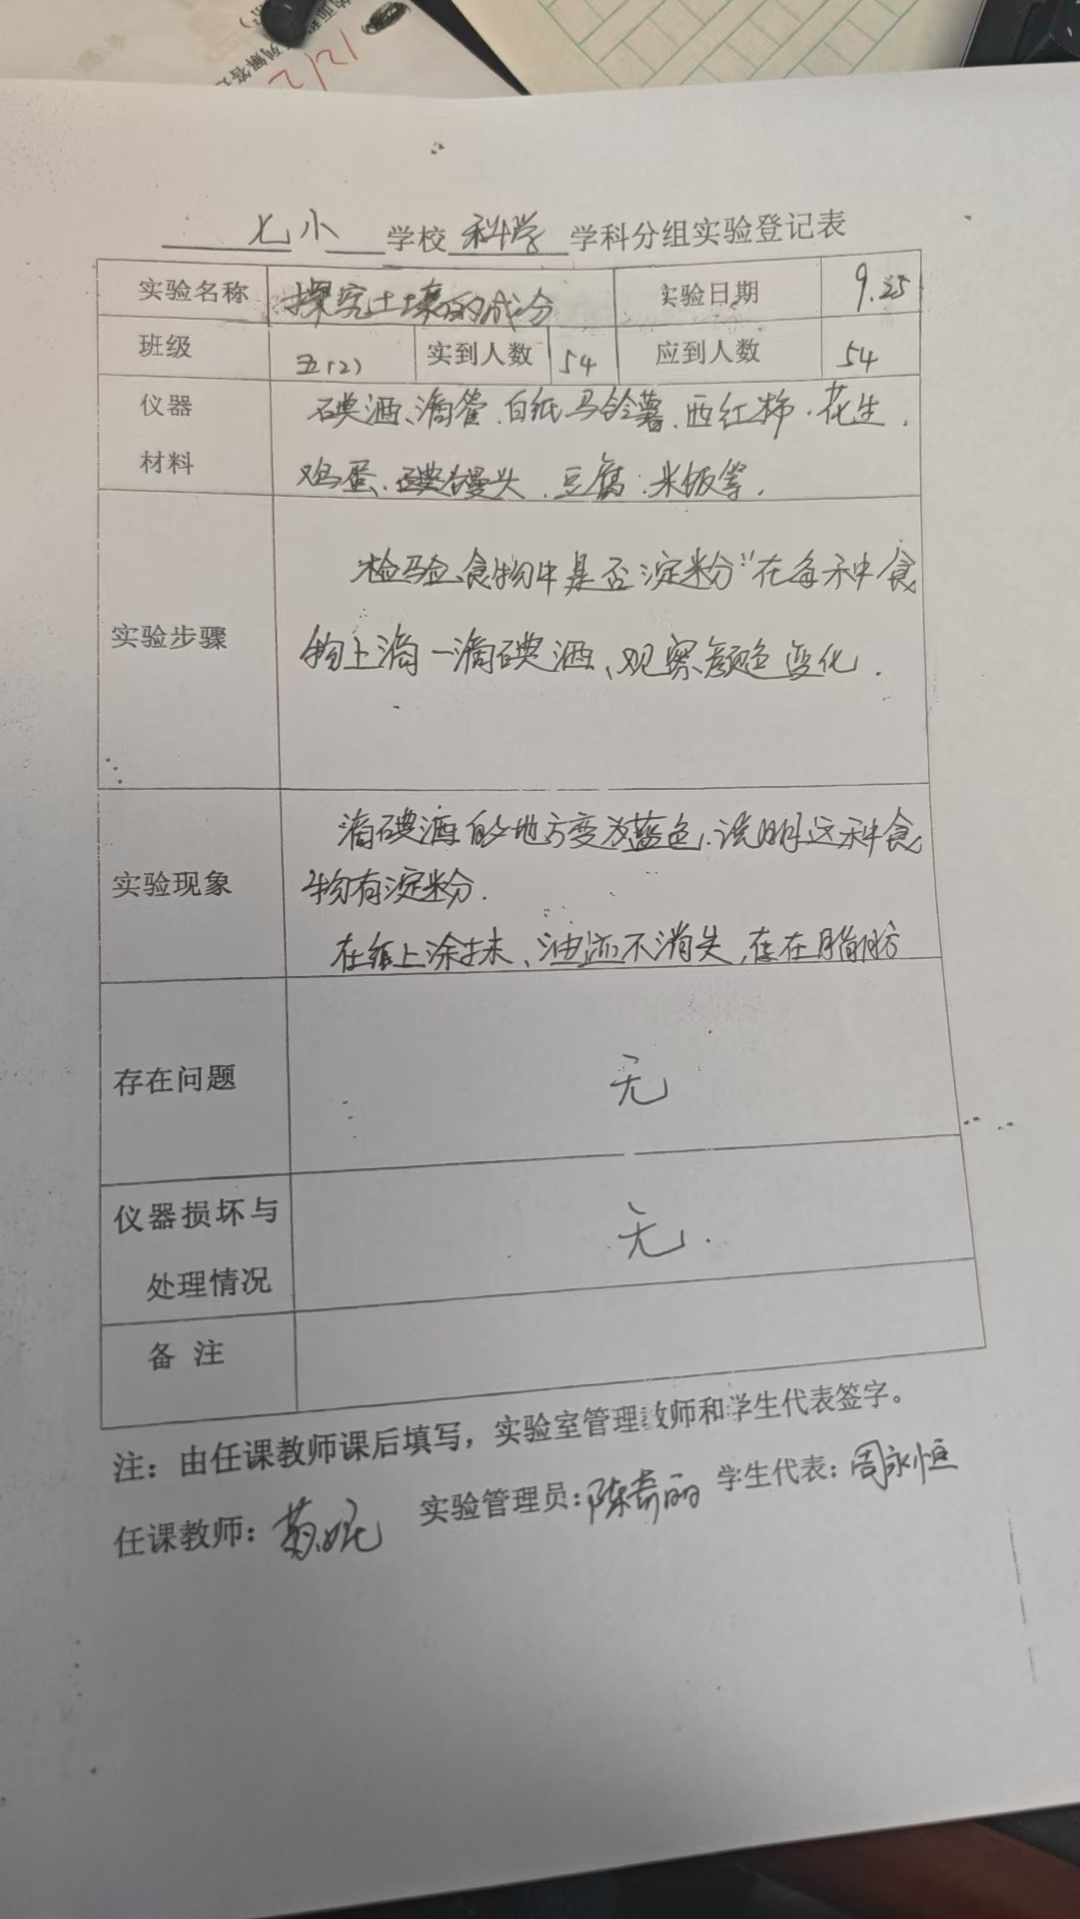 七小 学校 科学 学科分组实验登记表
实验名称 探究土壤的成分 实验日期 9.25
班级 五(2) 实到人数 54 应到人数 54
仪器 碘酒、滴管、白纸、马铃薯、西红柿、花生、
材料 鸡蛋、馒头、豆腐、米饭等.
检验食物中是否淀粉"在每种食
实验步骤 物上滴一滴碘酒、观察颜色变化.
滴碘酒的地方变为蓝色.说明这种食
实验现象 物有淀粉.
在纸上涂抹、油迹不消失,存在脂肪
存在问题 无
仪器损坏与 无.
处理情况
备 注
注：由任课教师课后填写，实验室管理教师和学生代表签字。
任课教师： 实验管理员：陈奇丽 学生代表：周永恒